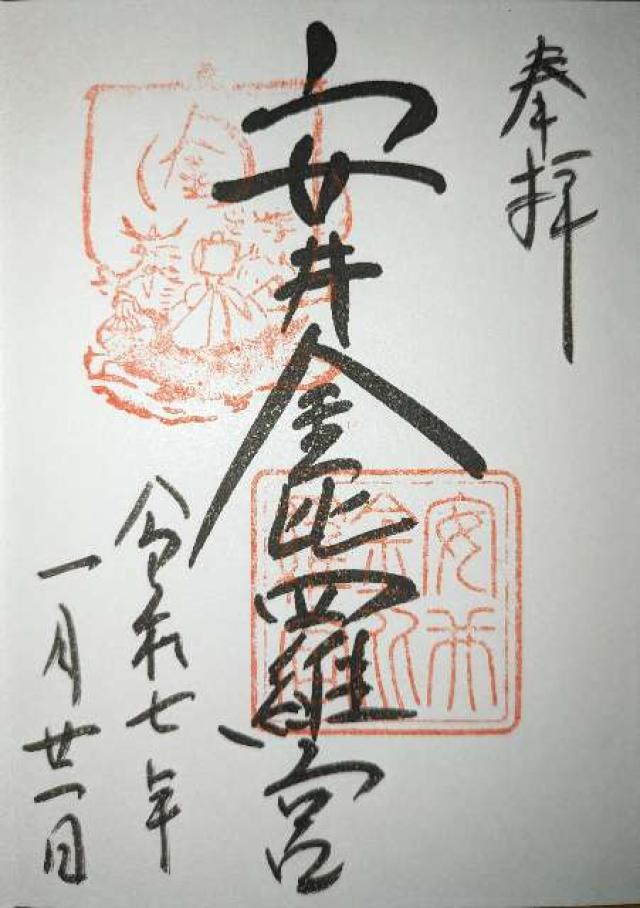 奉拝
安井金比羅宮
令和七年
一月廿一日
金
安井
金比
羅宮